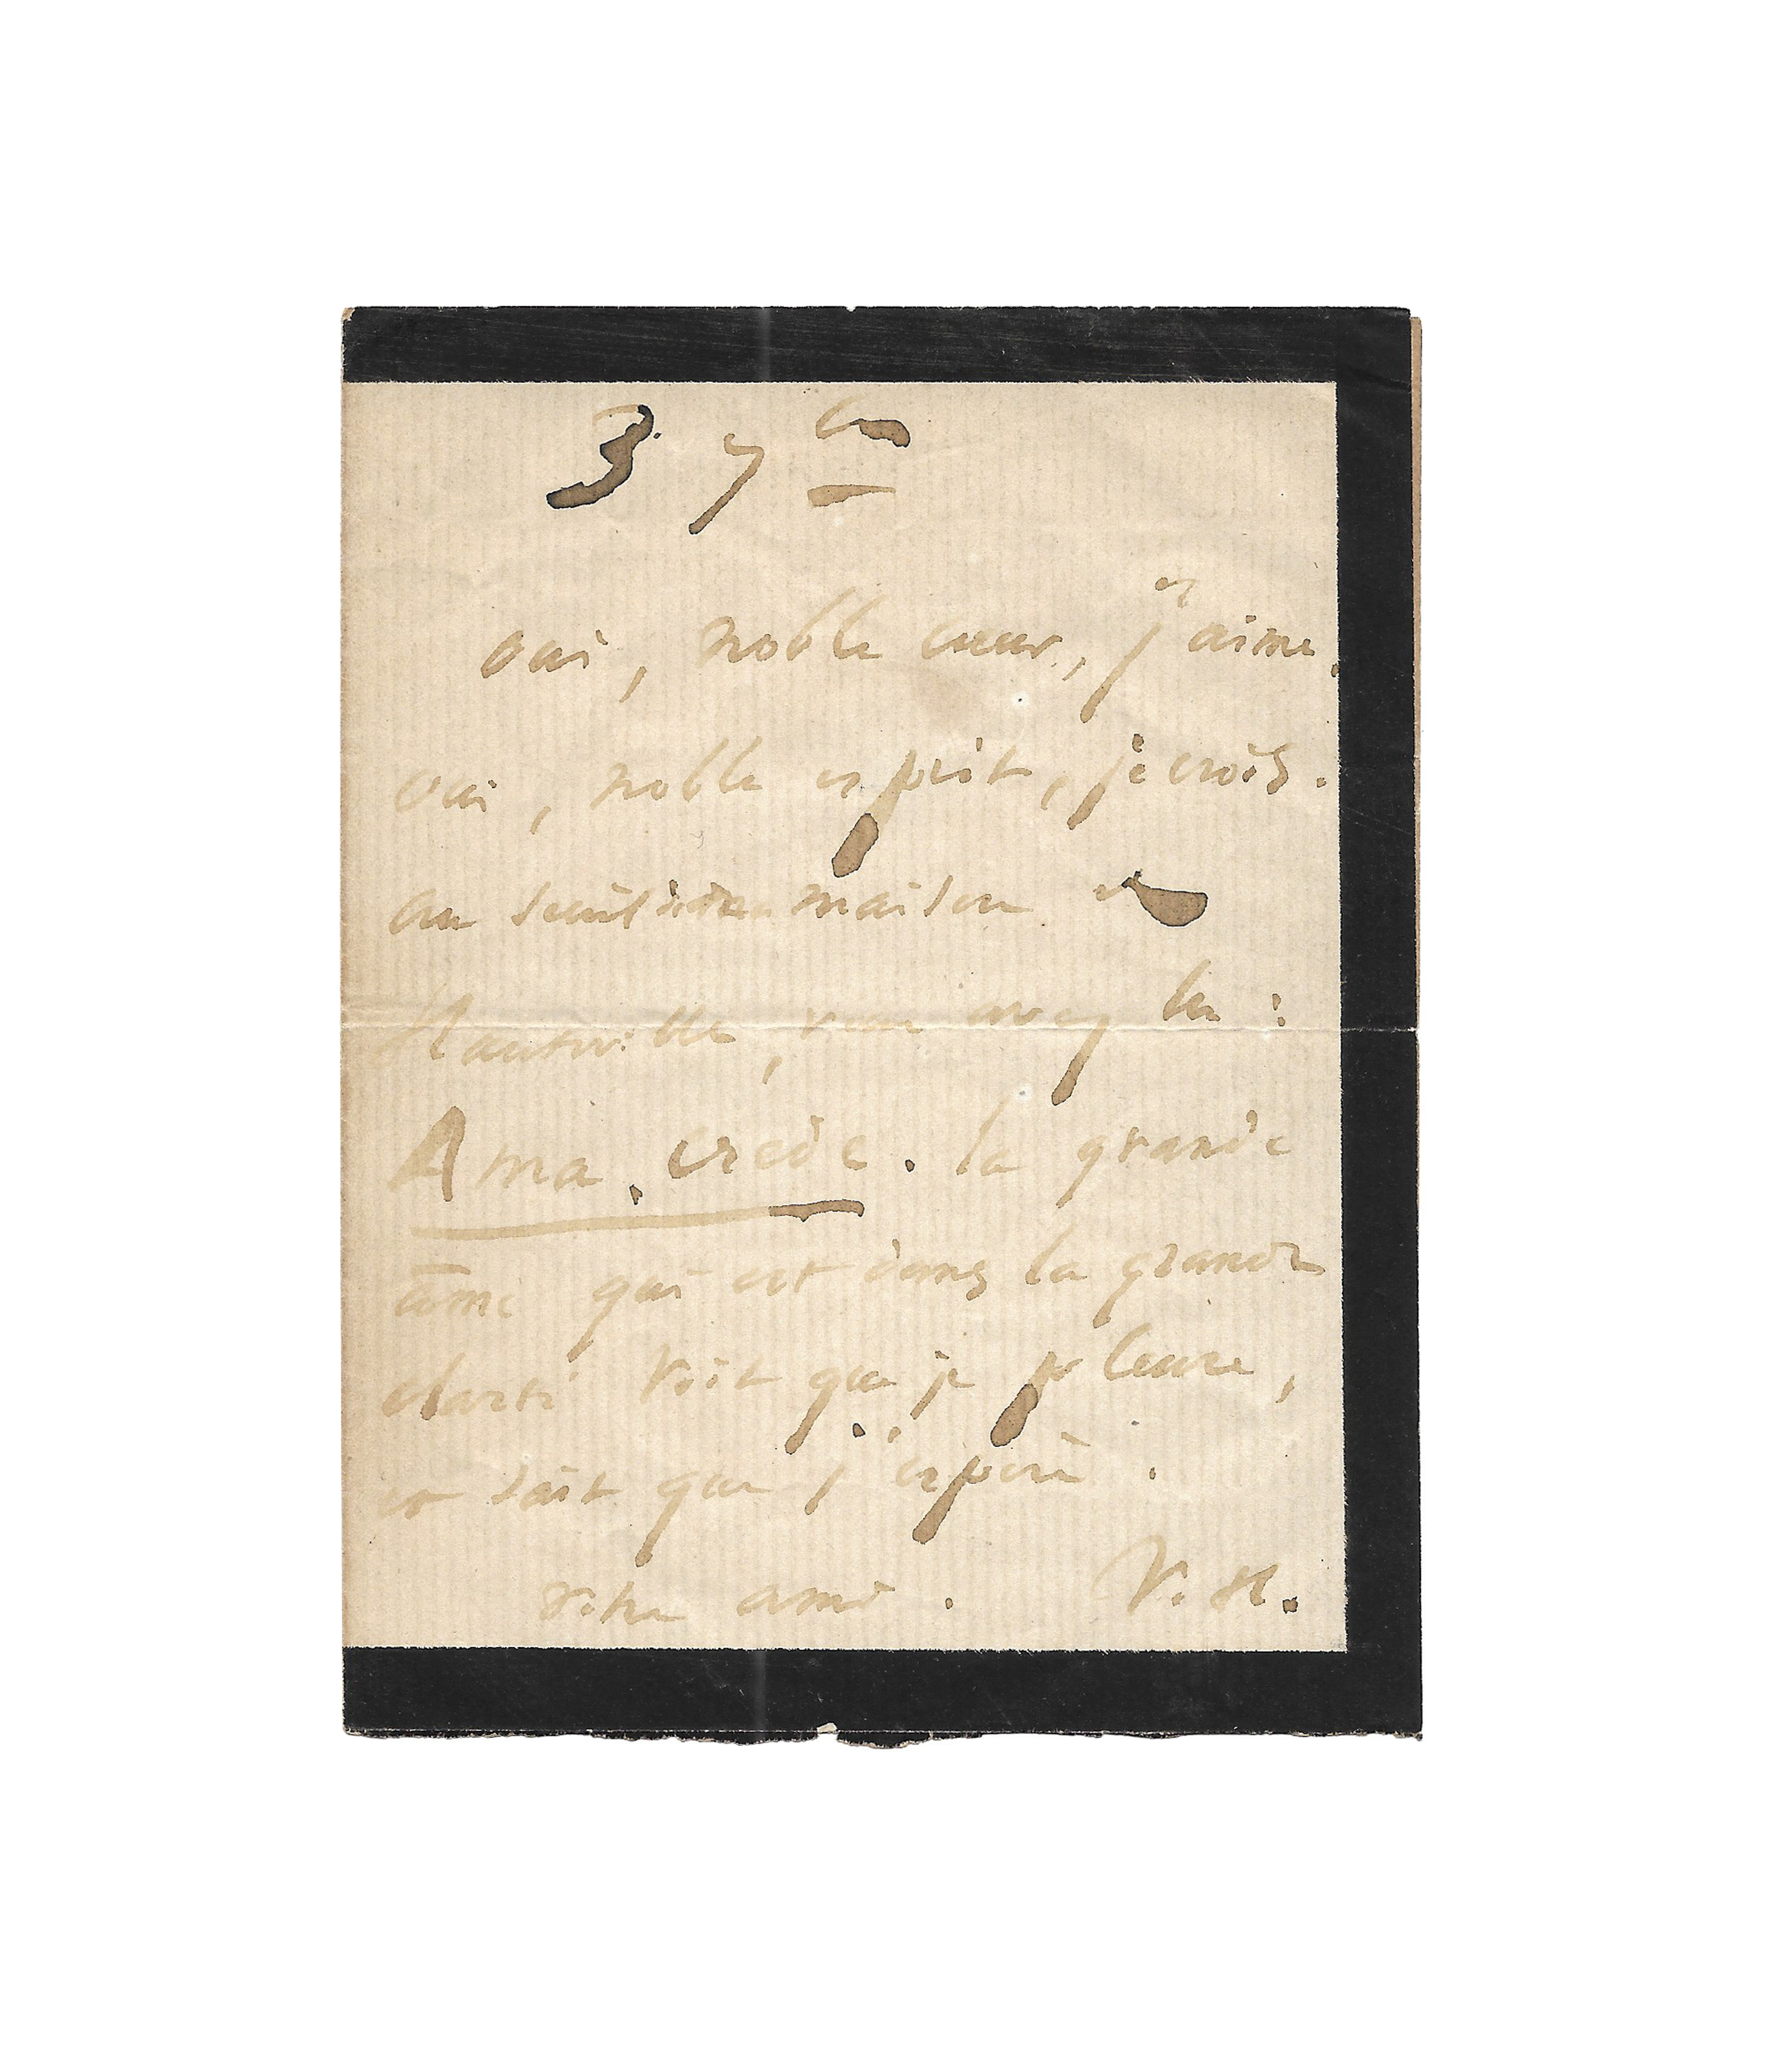 3 7bre
oui, noble cœur, j'aime.
oui, noble esprit, je crois.
au seuil de ma maison de
Hauteville, vous avez lu :
Ama, crede. la grande
âme qui est dans la grande
clarté voit que je pleure,
et sait que j'espère.
votre ami. V. H.